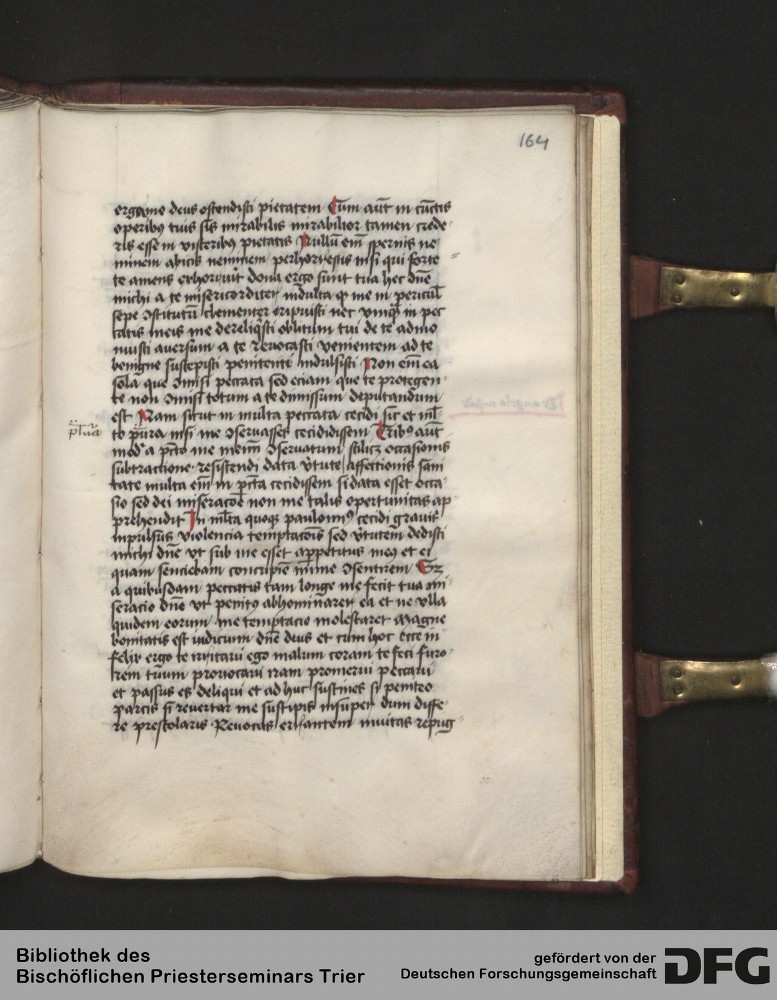 164
erga me deus ostendisti pietatem Cum aut in cunctis
operibus tuis sis mirabilis mirabilior tamen crede
ris esse in visceribus pietatis Nullu eni spernis ne
minem abicis neminem perhorrescis nisi qui forte
te amens exhorruit dona ergo sunt tua hec dne
michi a te misericorditer indulta qz me in pericul
sepe constitutu clementer eripuisti nec vnqz in pec
catis meis me dereliqsti oblitum tui de te admo
nuisti auersum a te reuocasti venientem ad te
benigne suscepisti penitenti indulsisti Non eni ea
sola que comisi peccata sed eciam que te protegen
te non comisi totum a te dimissum deputandum
est Nam sicut in multa peccata cecidi sic et in
nisi me conseruasses cecidissem Tribus aut
plura
mod a pcto me memini conseruatum scilicz occasionis
subtractione resistendi data vtute affectionis sani
tate multa eni in pcta cecidissem si data esset occa
sio sed dei miseracoe non me talis oportunitas ap
prehendit In mlta quoqz cecidi grauit
inpulsus violencia temptacois sed vtutem dedisti
michi dne vt sub me esset appetitus meus et ei
quam senciebam concupie mime consentirem
a quibusdam peccatis tam longe me fecit tua mi
seracio dne vt penitus abhominarer ea et ne vlla
quidem eorum me temptacio molestaret Magne
bonitatis est iudicium dne deus et cum hoc ecce in
felix ergo te irritaui ego malum coram te feci furo
rem tuum prouocaui iram promerui peccaui
et passus es deliqui et ad huc sustines si peniteo
parcis si reuertar me suscipis insuper dum diffe
ro prestolaris Reuocas errantem inuitas repug
Bibliothek des
Bischöflichen Priesterseminars Trier
gefördert von der
Deutschen Forschungsgemeinschaft
DFG